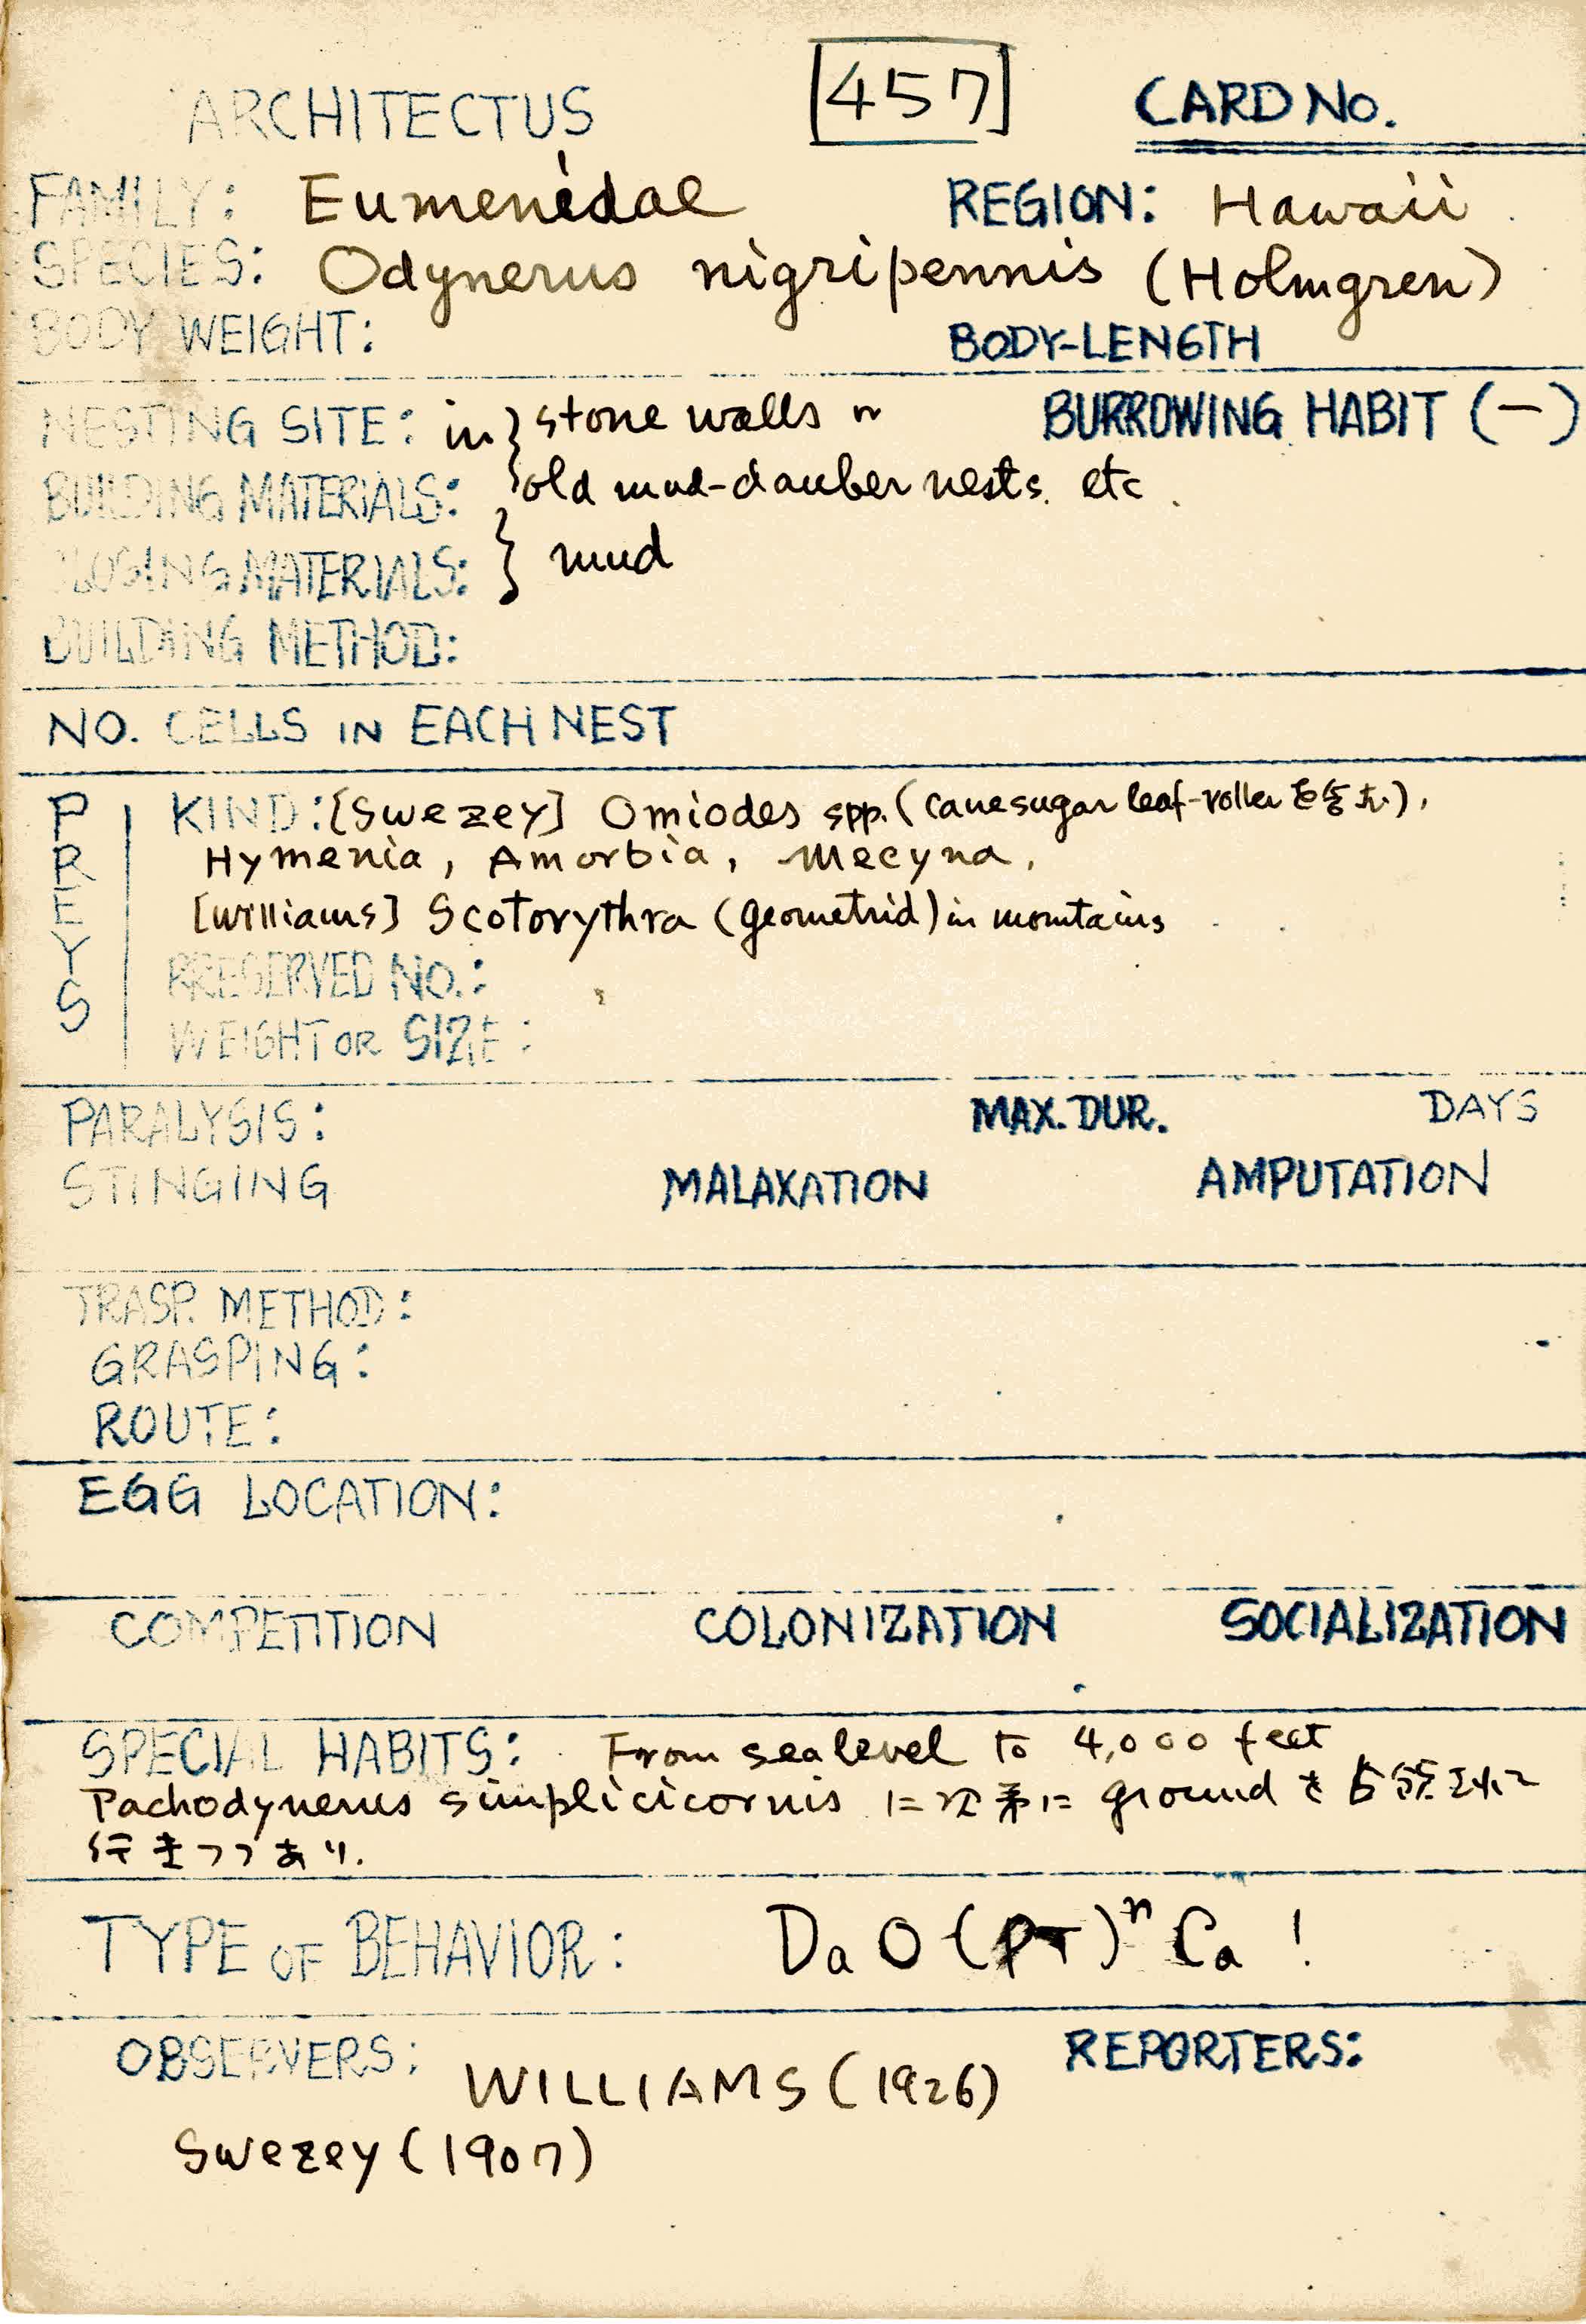 ARCHITECTUS [457] CARD NO.
FAMILY: Eumenidae REGION: Hawaii
SPECIES: Odynerus nigripennis (Holmgren)
BODY WEIGHT: BODY-LENGTH
NESTING SITE: in } stone walls or BURROWING HABIT (-)
BUILDING MATERIALS: old mud-dauber nests. etc.
CLOSING MATERIALS: } mud
BUILDING METHOD:
NO. CELLS IN EACH NEST
PREYS
KIND: [Swezey] Omiodes spp. (canesugar leaf-roller を含む),
Hymenia, Amorbia, Mecyna,
[Williams] Scotorythra (geometrid) in mountains
PRESERVED NO.:
WEIGHT OR SIZE:
PARALYSIS: MAX. DUR. DAYS
STINGING MALAXATION AMPUTATION
TRASP. METHOD:
GRASPING:
ROUTE:
EGG LOCATION:
COMPETITION COLONIZATION SOCIALIZATION
SPECIAL HABITS: From sea level to 4,000 feet
Pachodynerus simplicicornis に次第に ground を占領されて
行きつつあり.
TYPE OF BEHAVIOR: Da O (PT)ⁿ Ca !
OBSERVERS: WILLIAMS (1926) REPORTERS:
Swezey (1907)